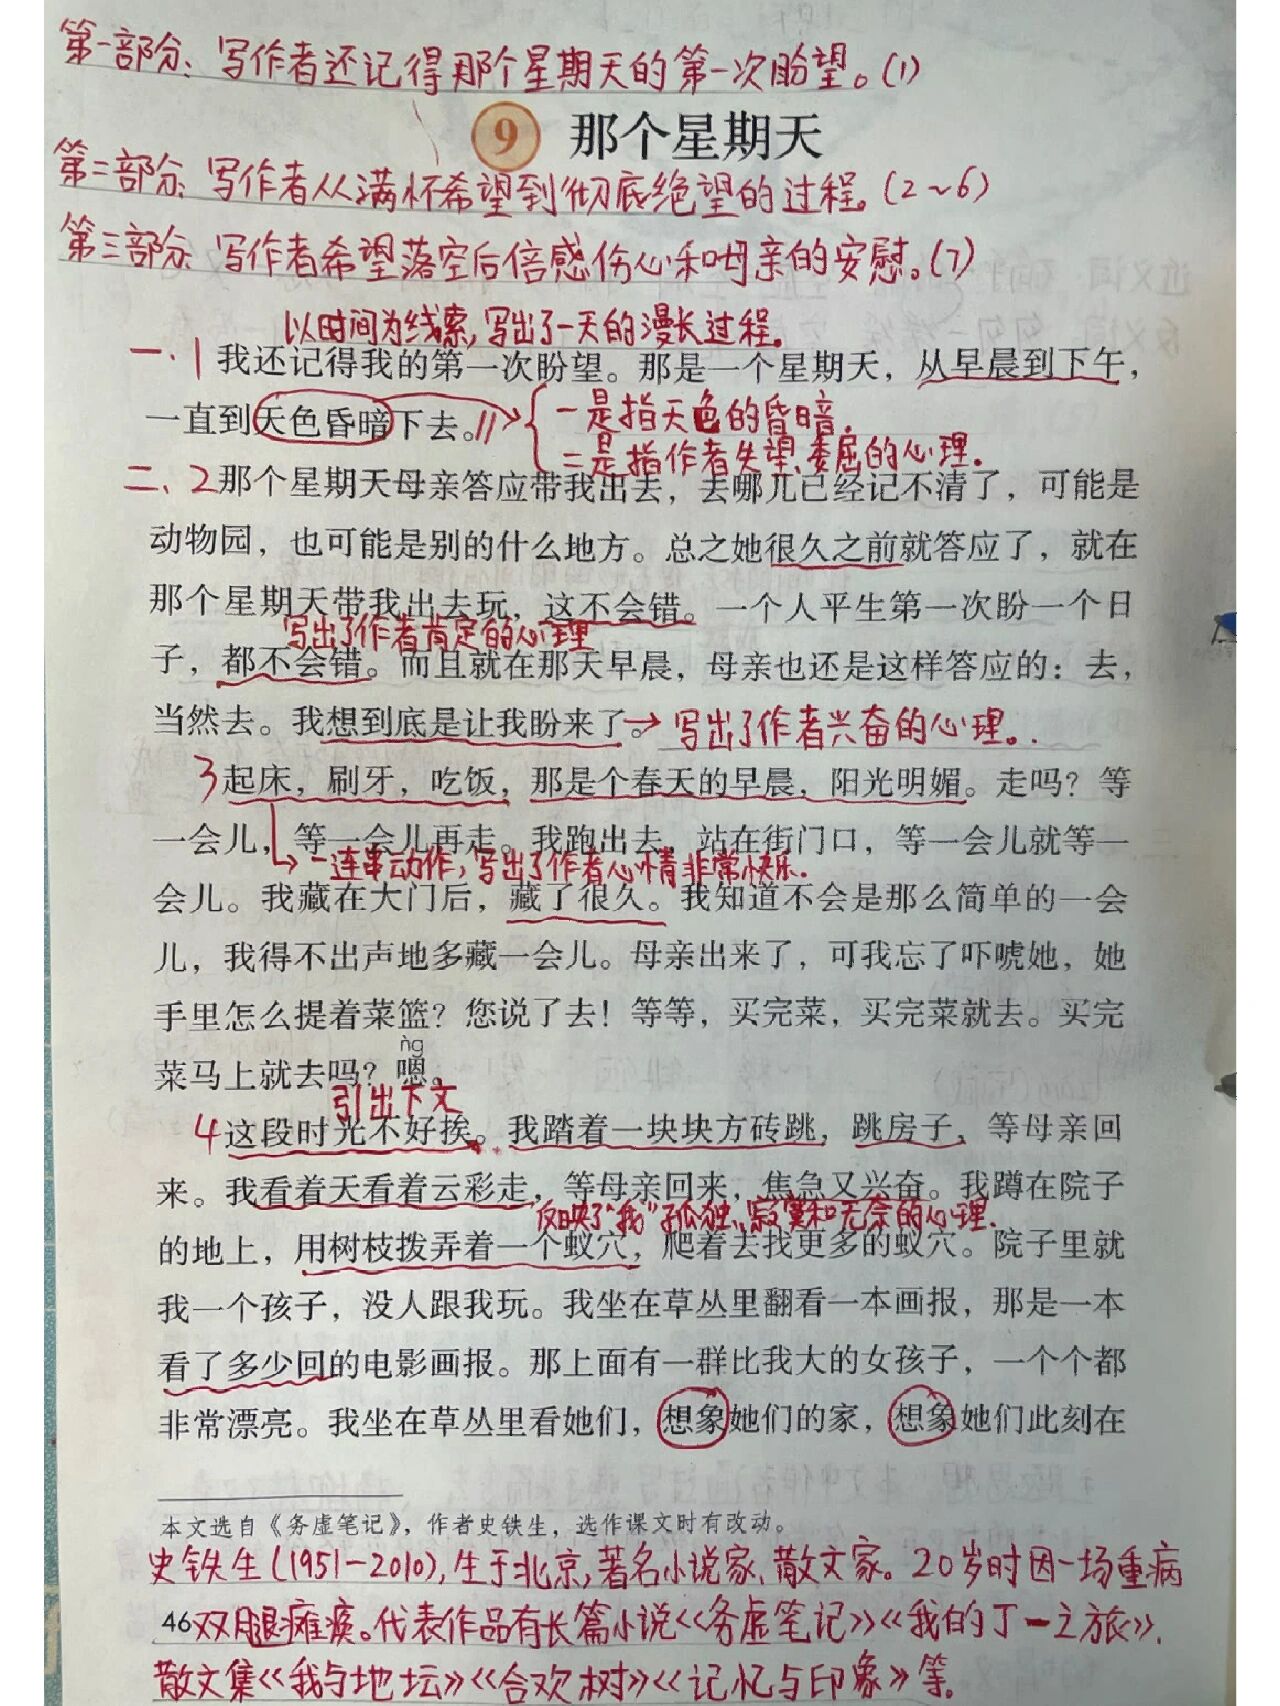 第一部分：写作者还记得那个星期天的第一次盼望。(1)
9 那个星期天
第二部分：写作者从满怀希望到彻底绝望的过程。(2~6)
第三部分：写作者希望落空后倍感伤心和母亲的安慰。(7)
以时间为线索，写出了一天的漫长过程。
一、1我还记得我的第一次盼望。那是一个星期天，从早晨到下午，
一直到天色昏暗下去。//
一是指天色的昏暗.
二是指作者失望、委屈的心理.
二、2那个星期天母亲答应带我出去，去哪儿已经记不清了，可能是
动物园，也可能是别的什么地方。总之她很久之前就答应了，就在
那个星期天带我出去玩，这不会错。一个人平生第一次盼一个日
写出了作者肯定的心理
子，都不会错。而且就在那天早晨，母亲也还是这样答应的：去，
当然去。我想到底是让我盼来了。→写出了作者兴奋的心理。.
3起床，刷牙，吃饭，那是个春天的早晨，阳光明媚。走吗？等
一会儿，等一会儿再走。我跑出去，站在街门口，等一会儿就等一
→一连串动作，写出了作者心情非常快乐.
会儿。我藏在大门后，藏了很久。我知道不会是那么简单的一会
儿，我得不出声地多藏一会儿。母亲出来了，可我忘了吓唬她，她
手里怎么提着菜篮？您说了去！等等，买完菜，买完菜就去。买完
ǹg
菜马上就去吗？嗯。
引出下文
4这段时光不好挨。我踏着一块块方砖跳，跳房子，等母亲回
来。我看着天看着云彩走，等母亲回来，焦急又兴奋。我蹲在院子
反映了“我”孤独、寂寞和无奈的心理.
的地上，用树枝拨弄着一个蚁穴，爬着去找更多的蚁穴。院子里就
我一个孩子，没人跟我玩。我坐在草丛里翻看一本画报，那是一本
看了多少回的电影画报。那上面有一群比我大的女孩子，一个个都
非常漂亮。我坐在草丛里看她们，想象她们的家，想象她们此刻在
本文选自《务虚笔记》，作者史铁生，选作课文时有改动。
史铁生(1951-2010)，生于北京，著名小说家、散文家。20岁时因一场重病
46双腿瘫痪。代表作品有长篇小说《务虚笔记》《我的丁一之旅》，
散文集《我与地坛》《合欢树》《记忆与印象》等。